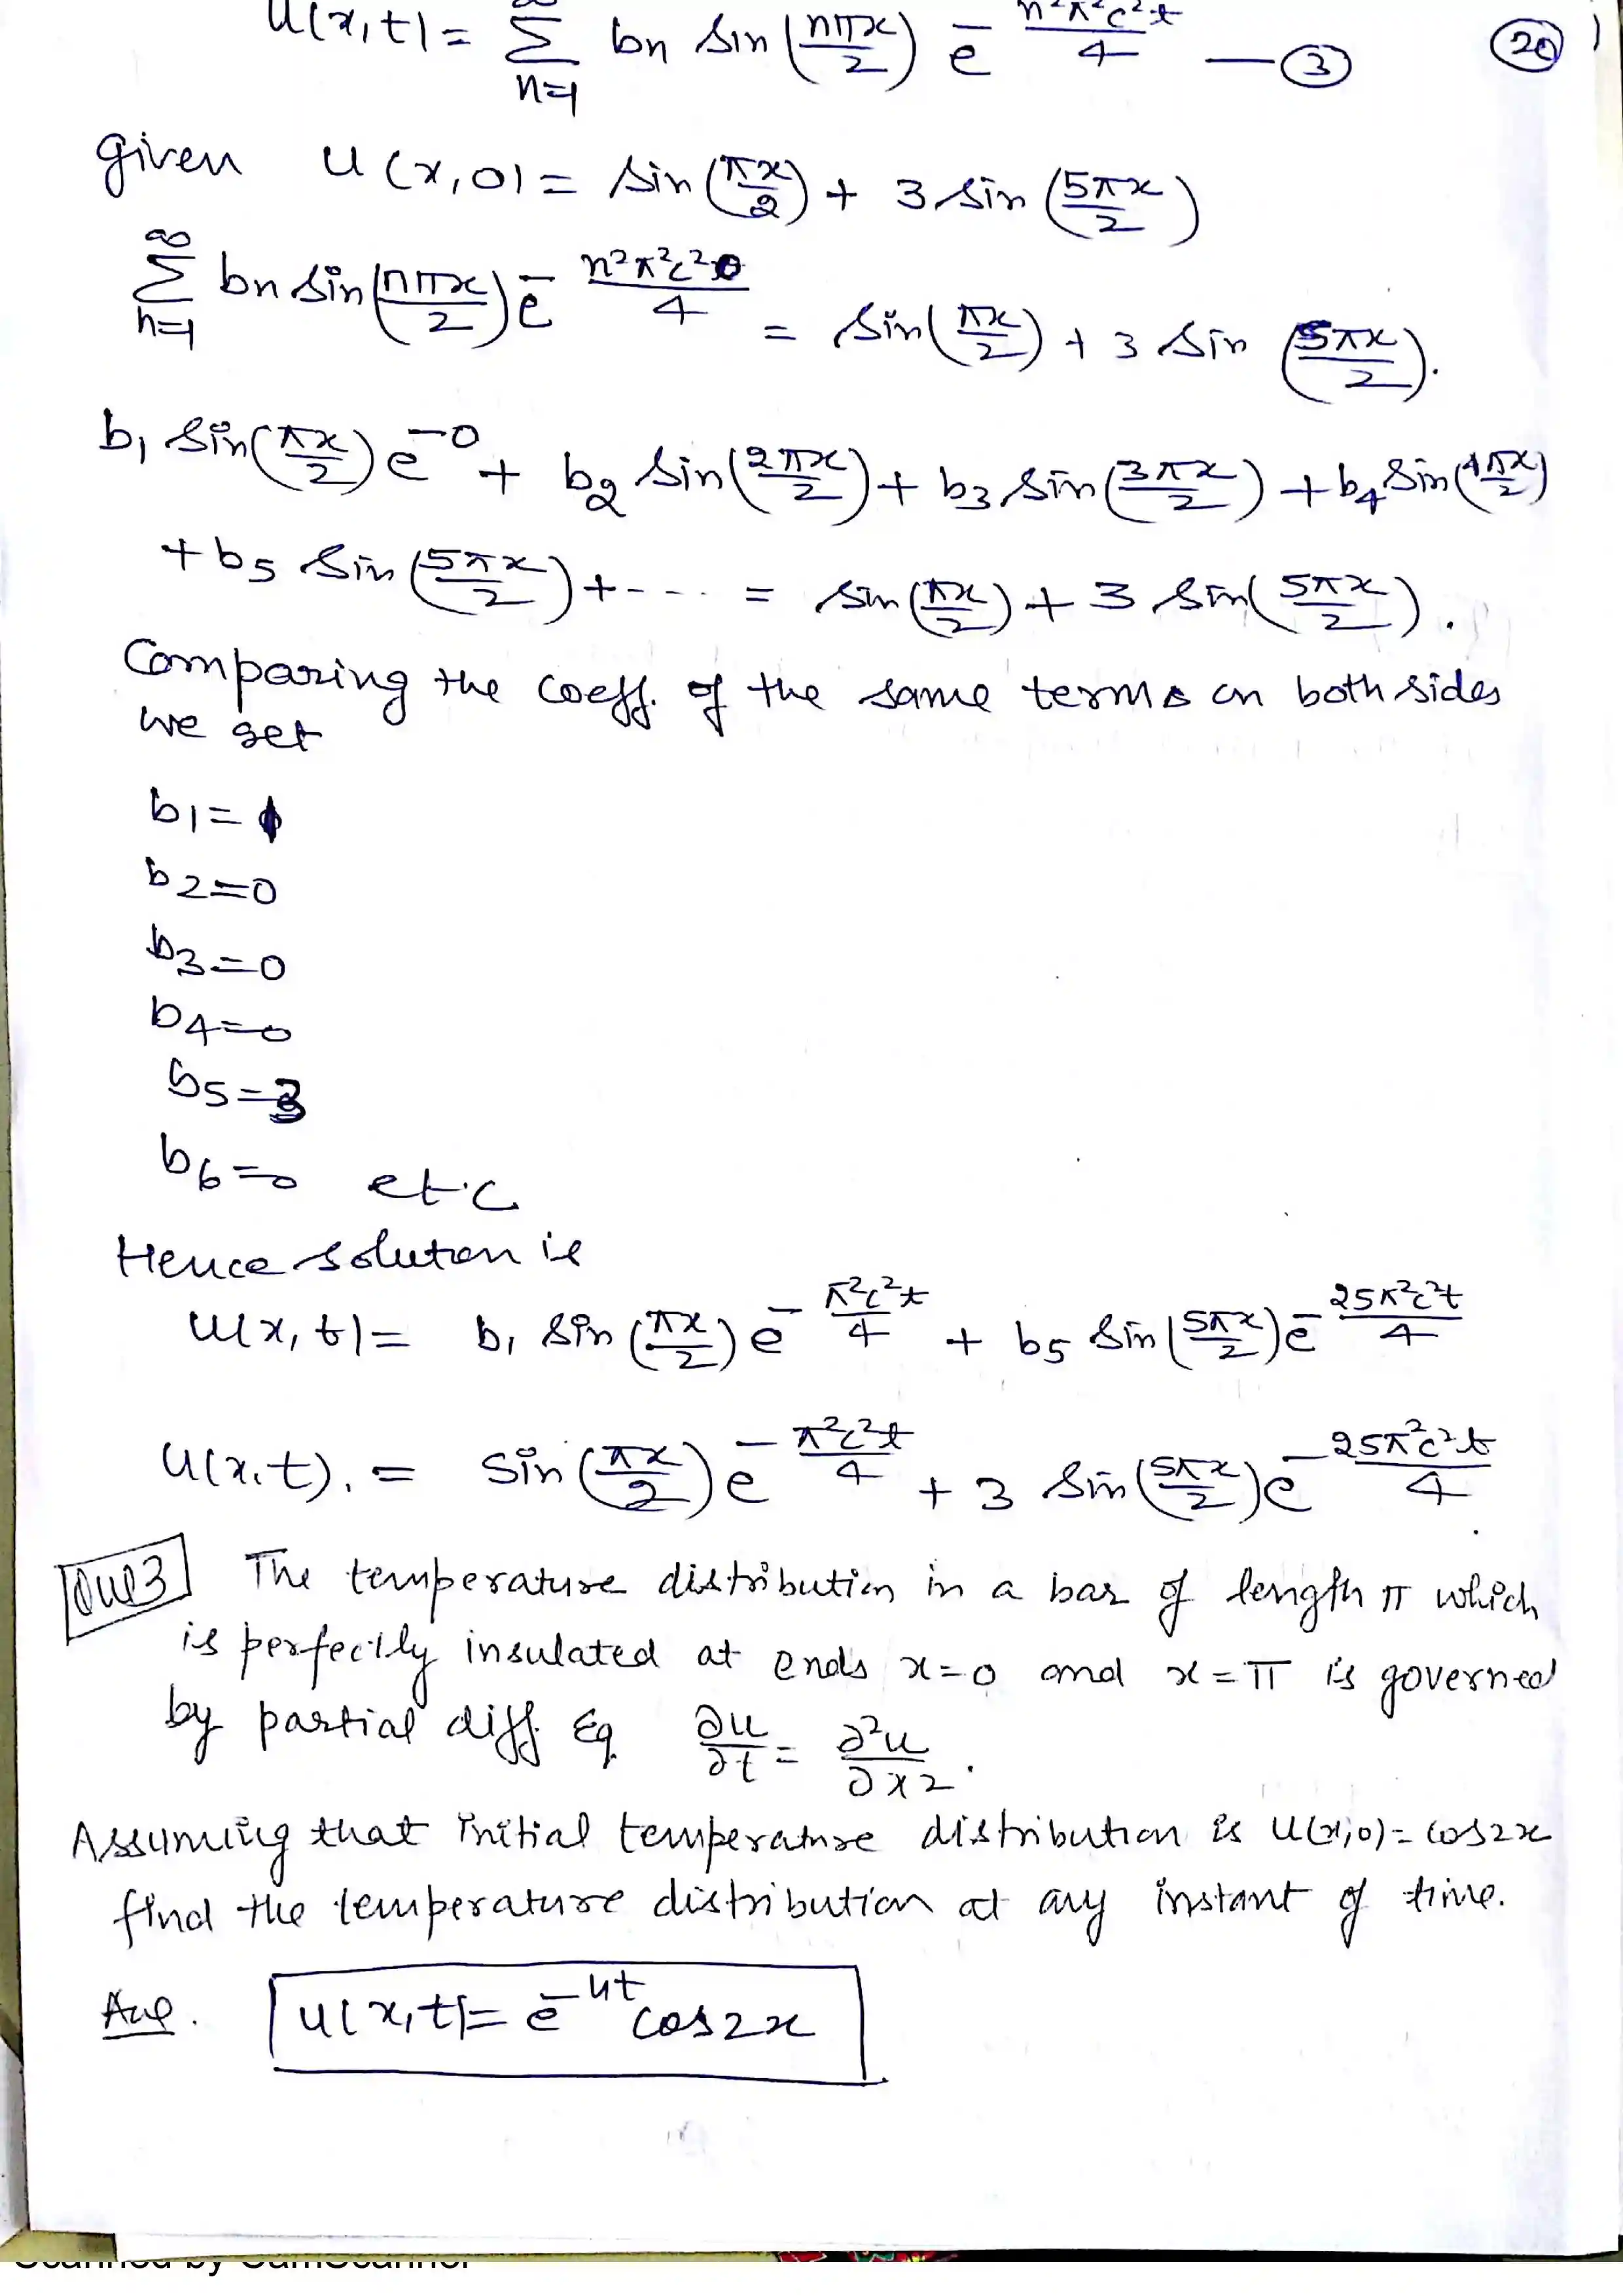 u(x,t) = ∞ Σ n=1 bn sin (nπx/2) e^- n²π²c²t/4 — ③ ⑳
given u(x,0) = sin (πx/2) + 3 sin (5πx/2)
∞ Σ n=1 bn sin (nπx/2) e^- n²π²c²0/4 = sin (πx/2) + 3 sin (5πx/2).
b₁ sin (πx/2) e^-0 + b₂ sin (2πx/2) + b₃ sin (3πx/2) + b₄ sin (4πx/2)
+ b₅ sin (5πx/2) + - - - = sin (πx/2) + 3 sin (5πx/2).
Comparing the coeff. of the same terms on both sides
we get
b₁ = 1
b₂ = 0
b₃ = 0
b₄ = 0
b₅ = 3
b₆ = 0 etc
Hence solution is
u(x,t) = b₁ sin (πx/2) e^- π²c²t/4 + b₅ sin (5πx/2) e^- 25π²c²t/4
u(x,t). = sin (πx/2) e^- π²c²t/4 + 3 sin (5πx/2) e^- 25π²c²t/4.
Que3 The temperature distribution in a bar of length π which
is perfectly insulated at ends x=0 and x=π is governed
by partial diff. Eq. ∂u/∂t = ∂²u/∂x2.
Assuming that initial temperature distribution is u(x,0) = cos2x
find the temperature distribution at any instant of time.
Ans. u(x,t) = e^-4t cos2x
Scanned by CamScanner